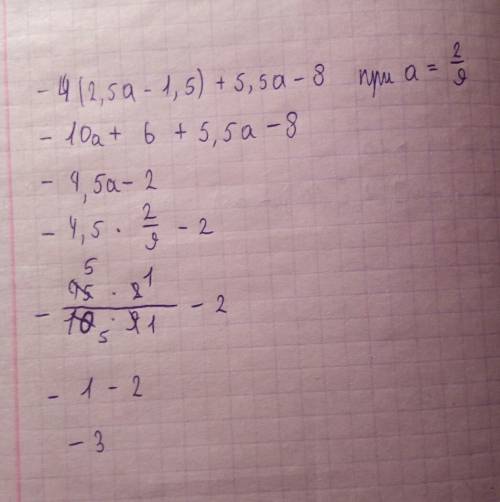 - 4(2,5a - 1,5) + 5,5a - 8 при a = 2/9
- 10a + 6 + 5,5a - 8
- 4,5a - 2
- 4,5 · 2/9 - 2
5 1
- 45 · 2 / 10 · 9 - 2
5 1
- 1 - 2
- 3